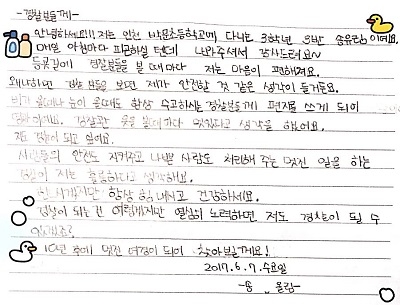 -경찰분들께-
안녕하세요!!! 저는 인천 박문초등학교에 다니는 3학년 3반 송유림이에요.
매일 아침마다 피곤하실 텐데 나와주셔서 감사드려요~
등굣길에 경찰분들을 볼 때마다 저는 마음이 편해져요.
왜냐하면 경찰 분들을 보면 제가 안전할 것 같은 생각이 들거든요.
비가 올때나 눈이 올때도 항상 수고하시는 경찰분들께 편지를 쓰게 되어
경찰관 분들 볼때마다 멋있다고 생각을 했어요.
저도 경찰이 되고 싶어요.
사람들의 안전도 지켜주고 나쁜 사람도 처리해 주는 멋진 일을 하는
경찰이 저는 훌륭하다고 생각해요.
항상 힘내시고 건강하세요.
경찰이 되는 건 어렵겠지만 열심히 노력하면 저도 경찰이 될 수
있겠죠?
10년 후에 멋진 여경이 되어 찾아뵐게요!
2017.6.7.수요일